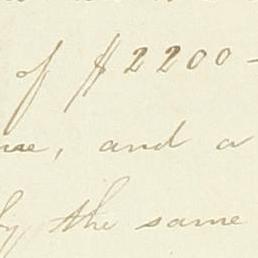 of $2200-
, and a
by the same